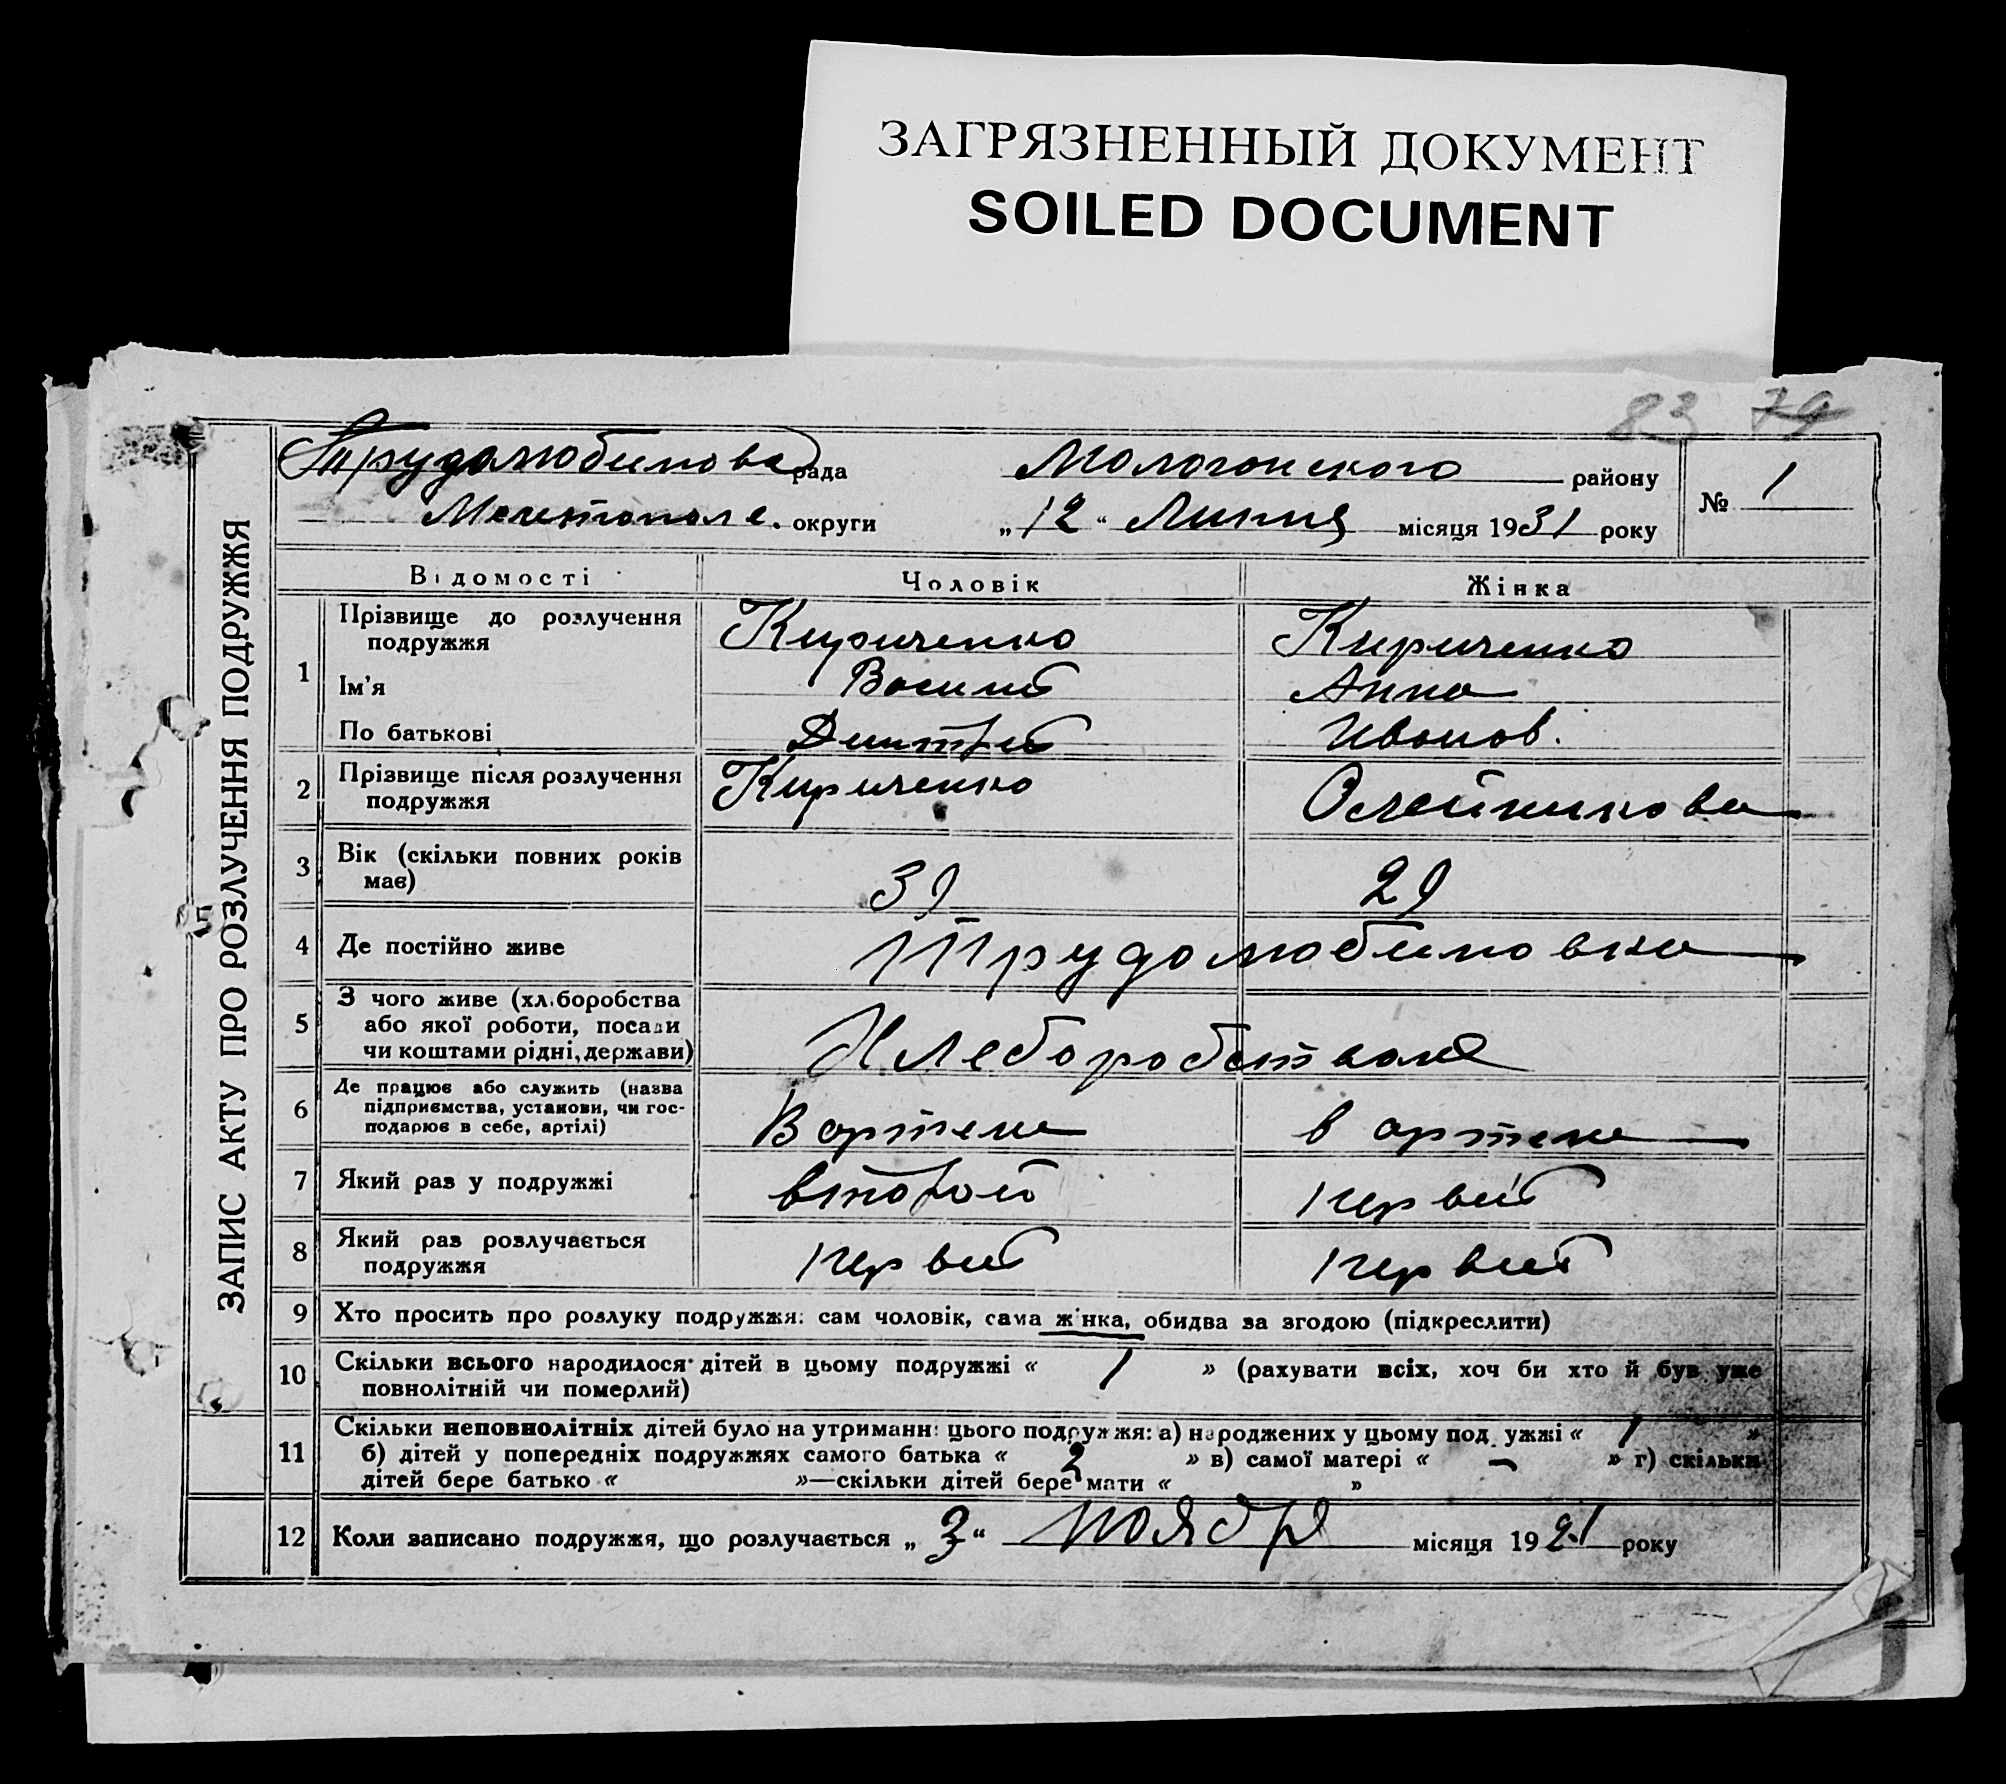 ЗАГРЯЗНЕННЫЙ ДОКУМЕНТ
SOILED DOCUMENT
83 79
ЗАПИС АКТУ ПРО РОЗЛУЧЕННЯ ПОДРУЖЖЯ
Трудолюбимова рада
района
Мелетополе. округи
„12“ Липня місяця 1931 року
№ 1
Відомості Чоловік Жінка
1 Прізвище до розлучення подружжя Кириченко Кириченко
Ім'я Василий Анна
По батькові Иванов.
2 Прізвище після розлучення подружжя Кириченко Олейникова
3 Вік (скільки повних років має) 31 29
4 Де постійно живе Трудолюбимовка
5 З чого живе (хліборобства або якої роботи, посади чи коштами рідні, держави) Хлеборобством
6 Де працює або служить (назва підприємства, установи, чи господарює в себе, артілі) В артели в артели
7 Який раз у подружжі второй первий
8 Який раз розлучається подружжя первий первий
9 Хто просить про розлуку подружжя: сам чоловік, сама жінка, обидва за згодою (підкреслити)
10 Скільки всього народилося дітей в цьому подружжі « 1 » (рахувати всіх, хоч би хто й був уже
повнолітній чи померлий)
11 Скільки неповнолітніх дітей було на утриманні цього подружжя: а) народжених у цьому подружжі « 1 »
б) дітей у попередніх подружжях самого батька « 2 » в) самої матері « – » г) скільки
дітей бере батько « »—скільки дітей бере мати « »
12 Коли записано подружжя, що розлучається „3“ ноядря місяця 1921 року